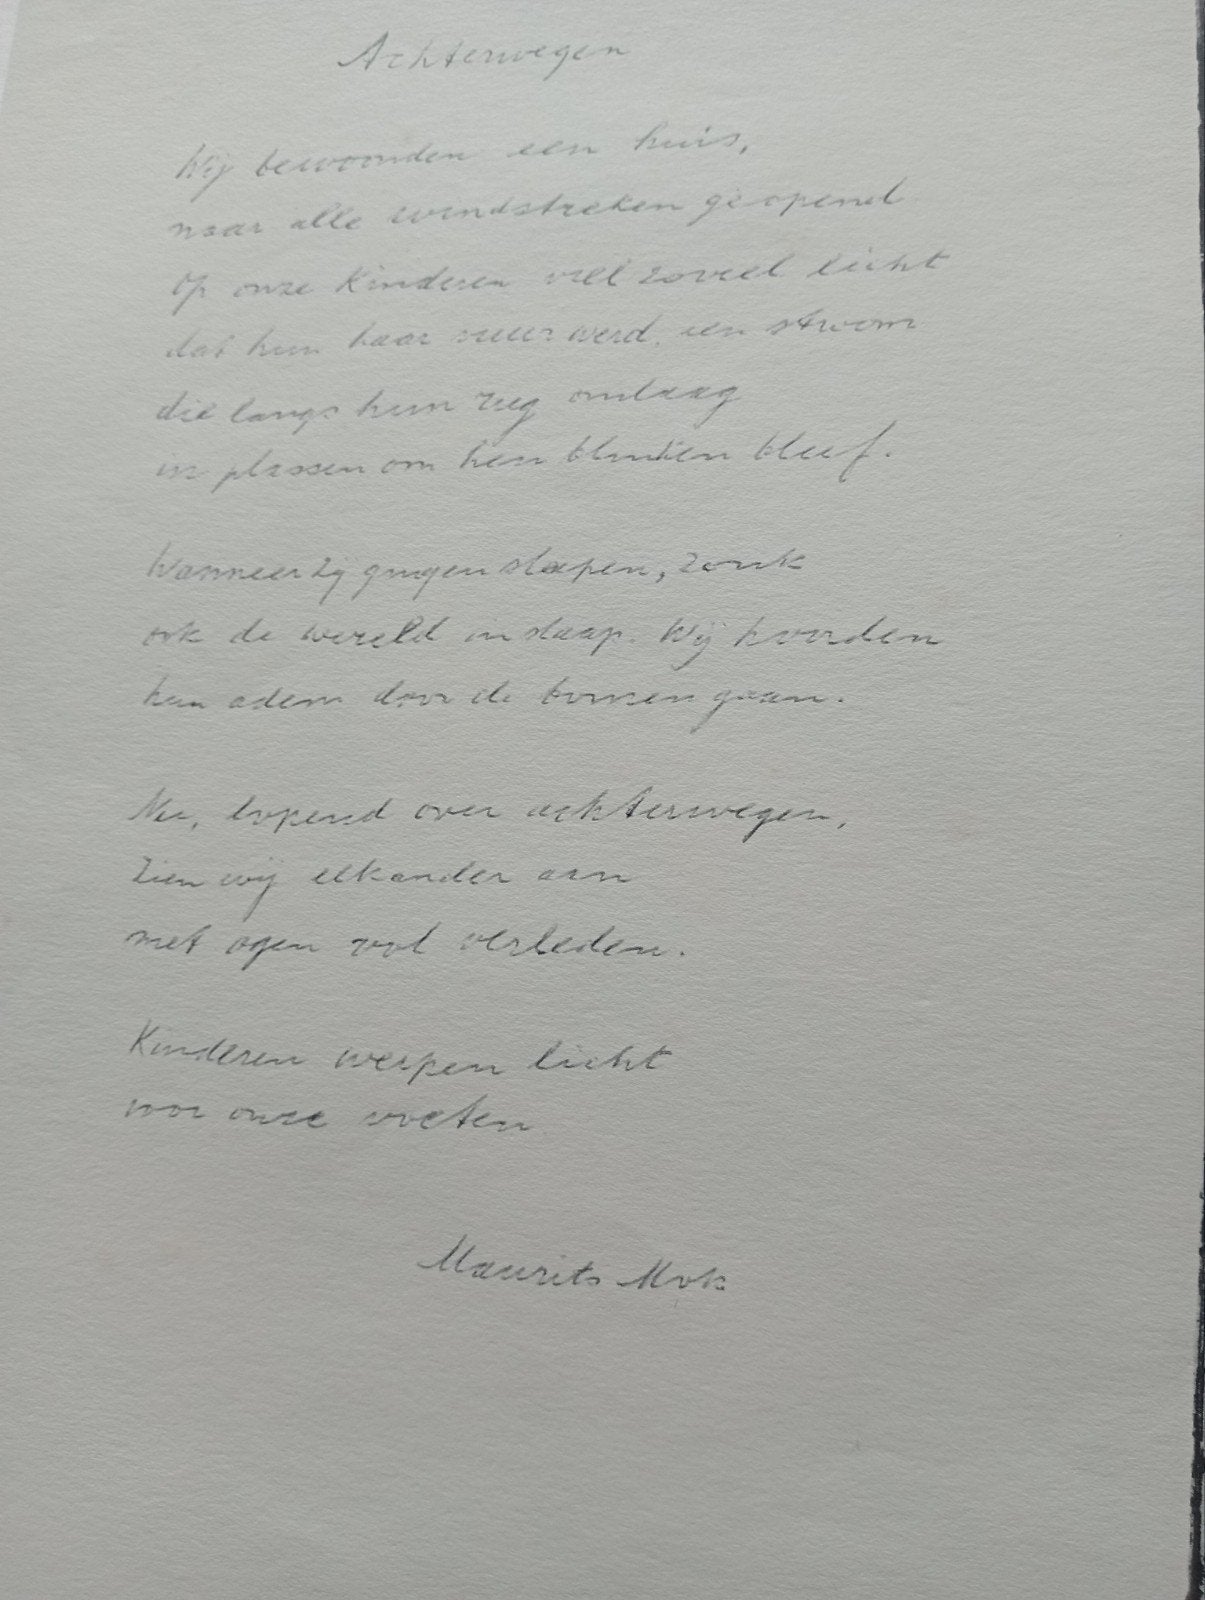 Achterwegen
Wij bewoonden een huis,
naar alle windstreken geopend.
Op onze kinderen viel zoveel licht
dat hun haar vuur werd, een stroom
die langs hun rug omlaag
in plassen om hen blinken bleef.
Wanneer zij gingen slapen, zonk
ook de wereld in slaap. Wij hoorden
hun adem door de bomen gaan.
Nu, lopend over achterwegen,
zien wij elkander aan
met ogen vol verleden.
Kinderen werpen licht
voor onze voeten
Maurits Mok